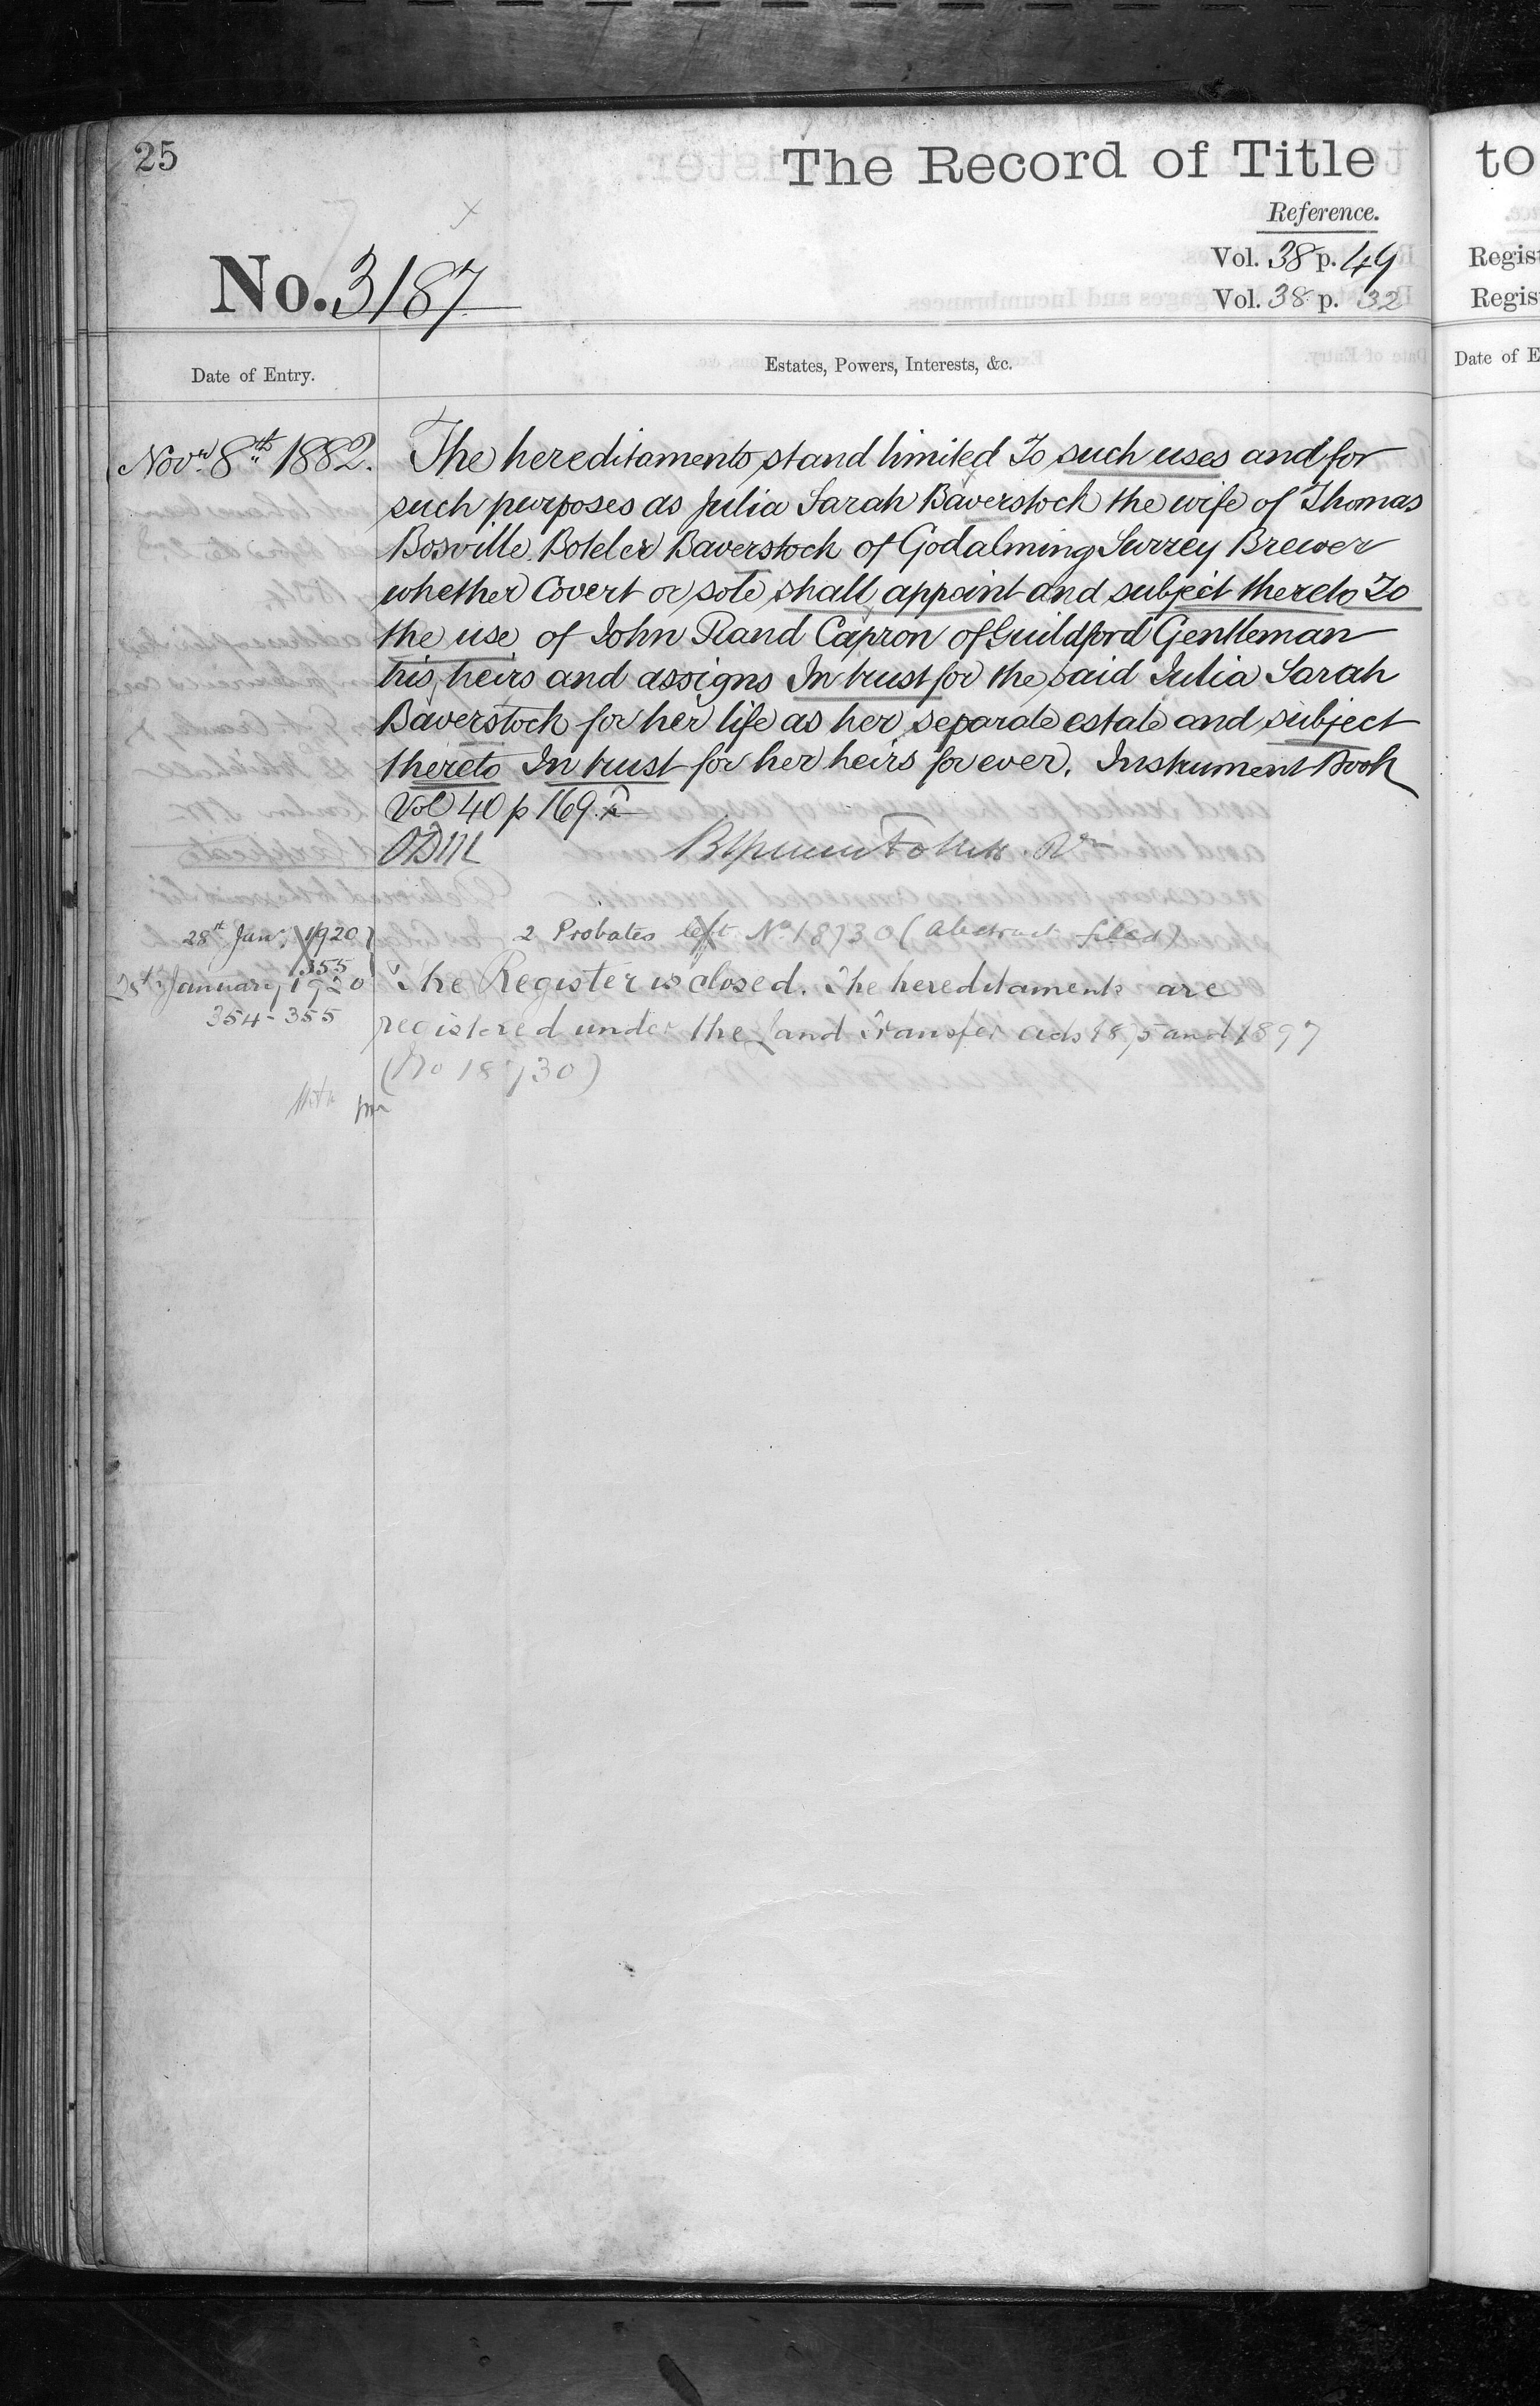 25
The Record of Title
Reference.
No. 3187
Vol. 38 p. 49
Vol. 38 p. 32
Date of Entry.
Estates, Powers, Interests, &c.
Novr. 8th 1882.
The hereditaments stand limited To such uses and for
such purposes as Julia Sarah Baverstock the wife of Thomas
Bosville Boteler Baverstock of Godalming Surrey Brewer
whether Covert or sole shall appoint and subject thereto To
the use of John Rand Capron of Guildford Gentleman
his heirs and assigns In trust for the said Julia Sarah
Baverstock for her life as her separate estate and subject
thereto In trust for her heirs for ever. Instrument Book
Vol 40 p 169.
28th Jany 1920
355
2 Probates left No 18730 (Abstract filed)
January 1920
354-355
The Register is closed. The hereditaments are
registered under the Land Transfer acts 1875 and 1897
(No 18730)
to
Regist
Regis
Date of E